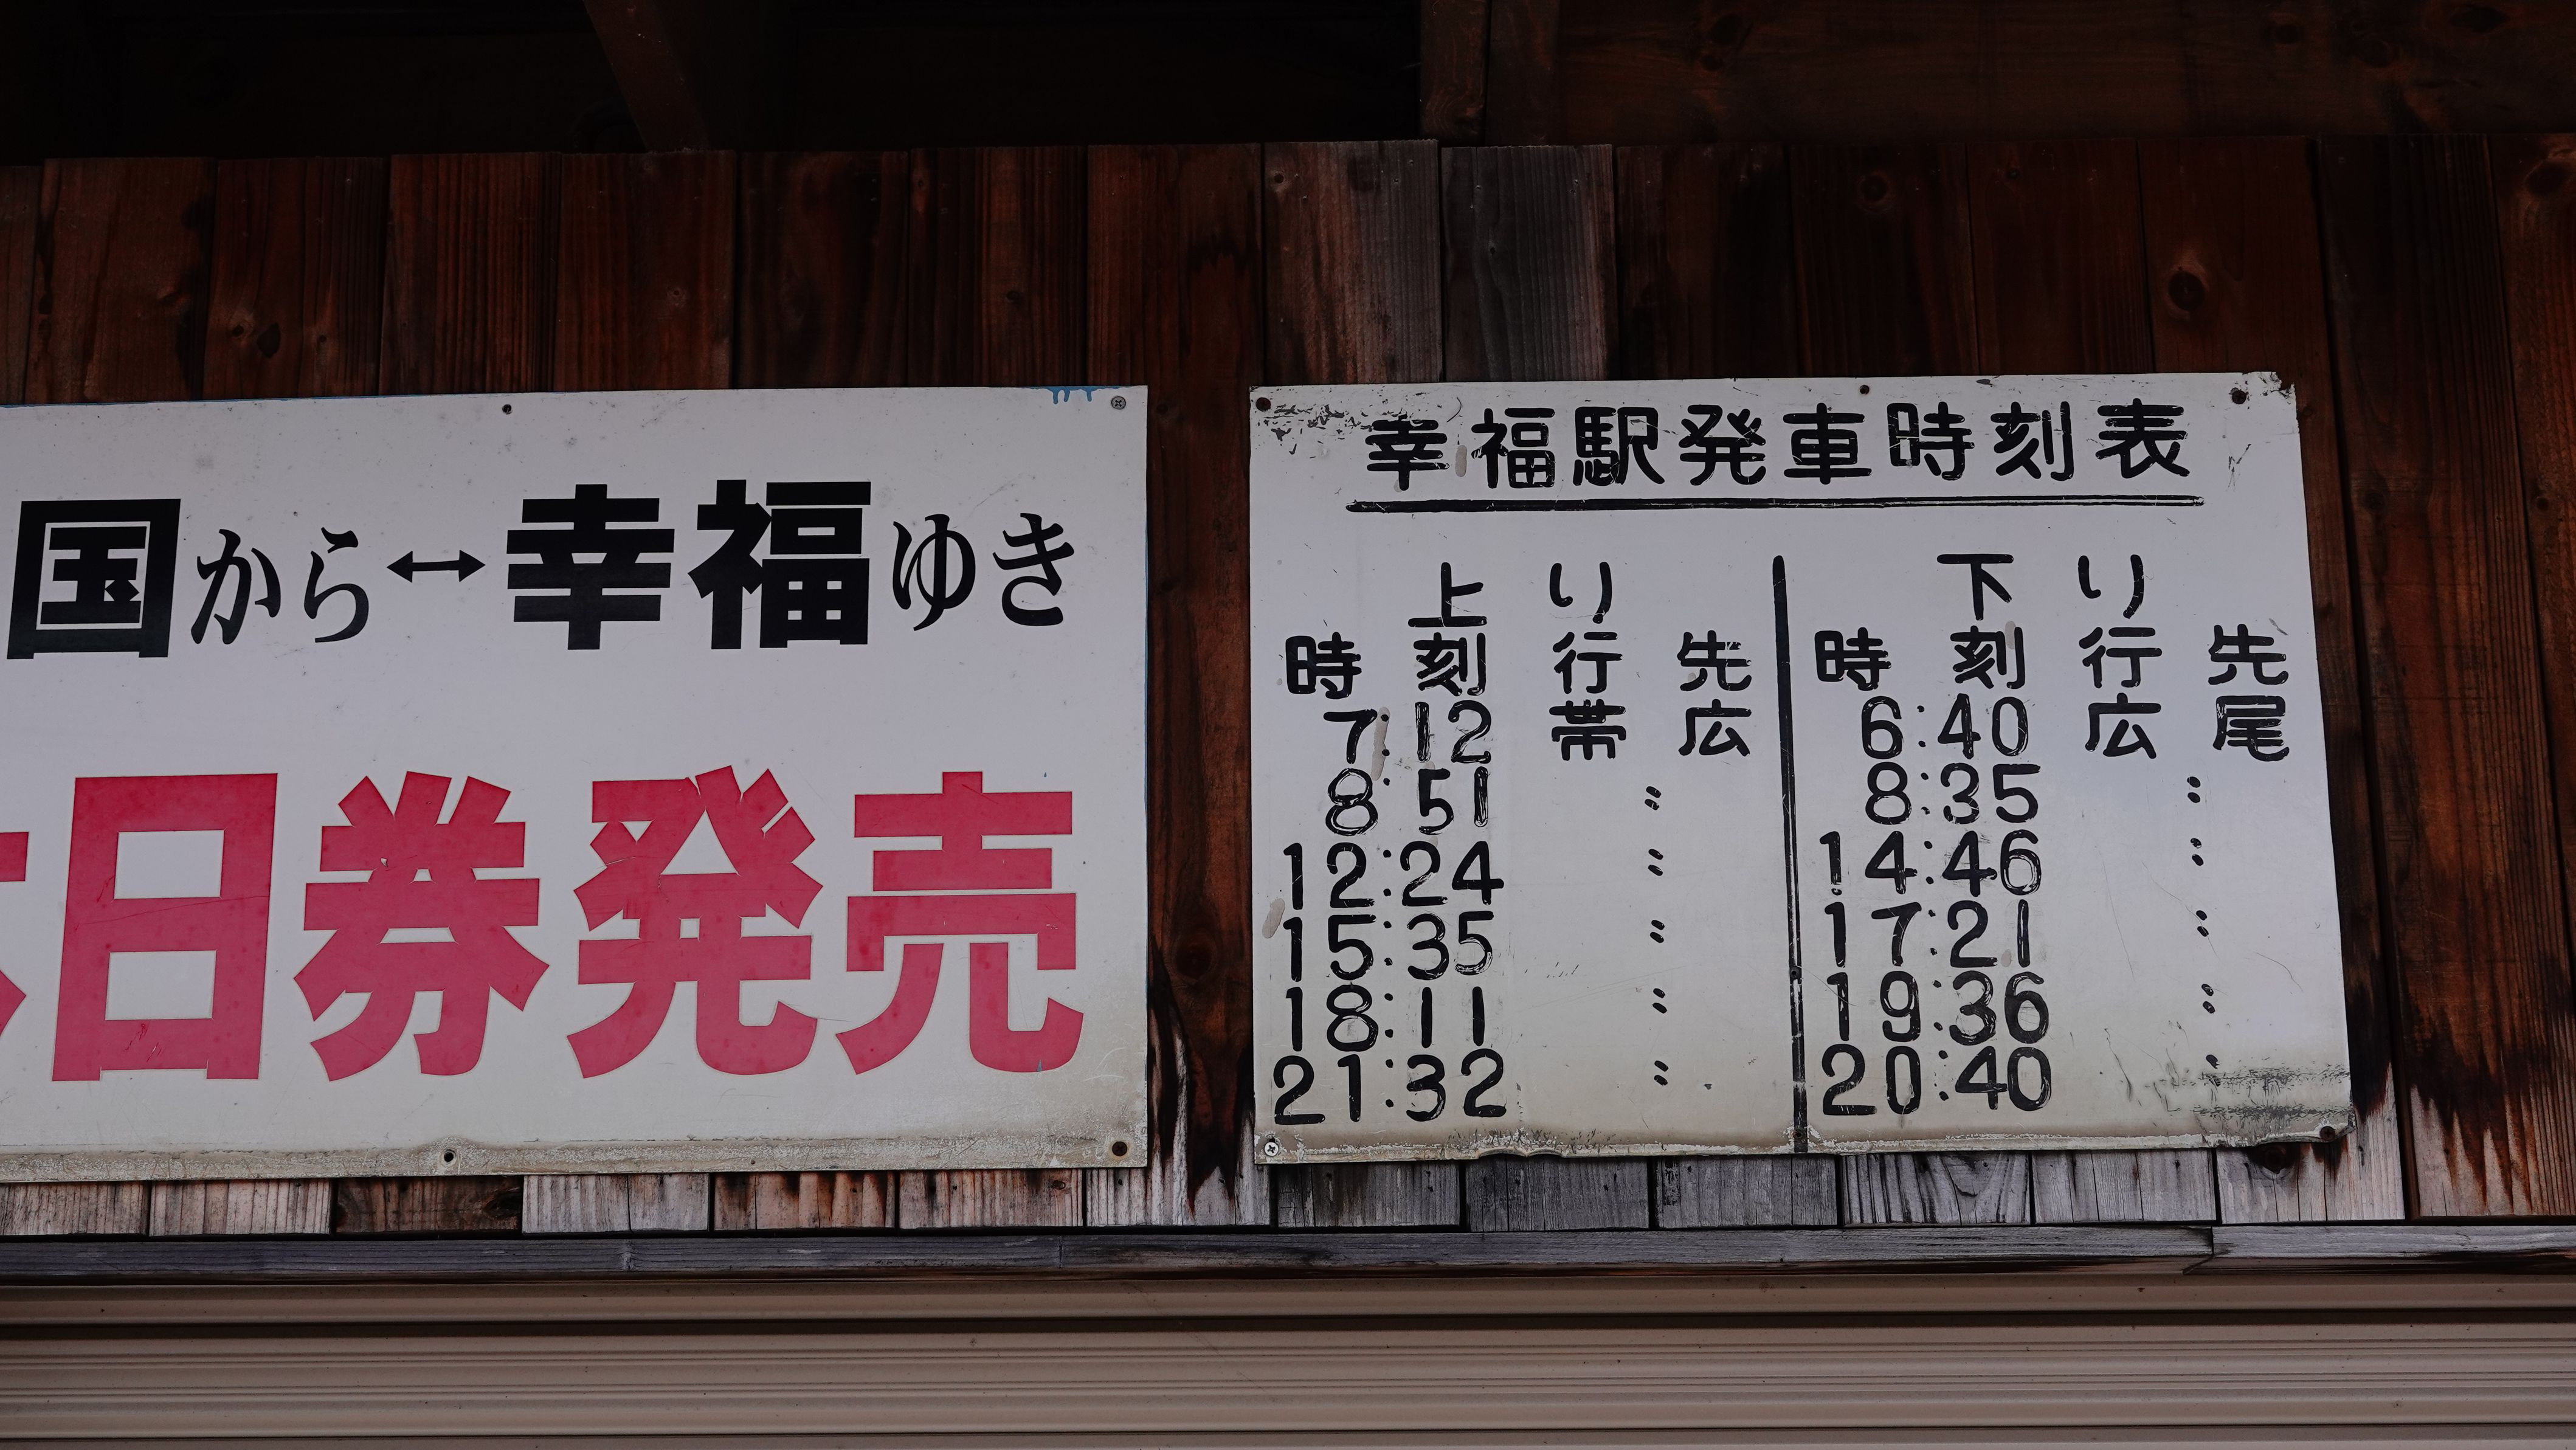 国から↔幸福ゆき
日券発売
幸福駅発車時刻表
上り 下り
時刻 行先 時刻 行先
7:12 帯広 6:40 広尾
8:51 〃 8:35 〃
12:24 〃 14:46 〃
15:35 〃 17:21 〃
18:11 〃 19:36 〃
21:32 〃 20:40 〃